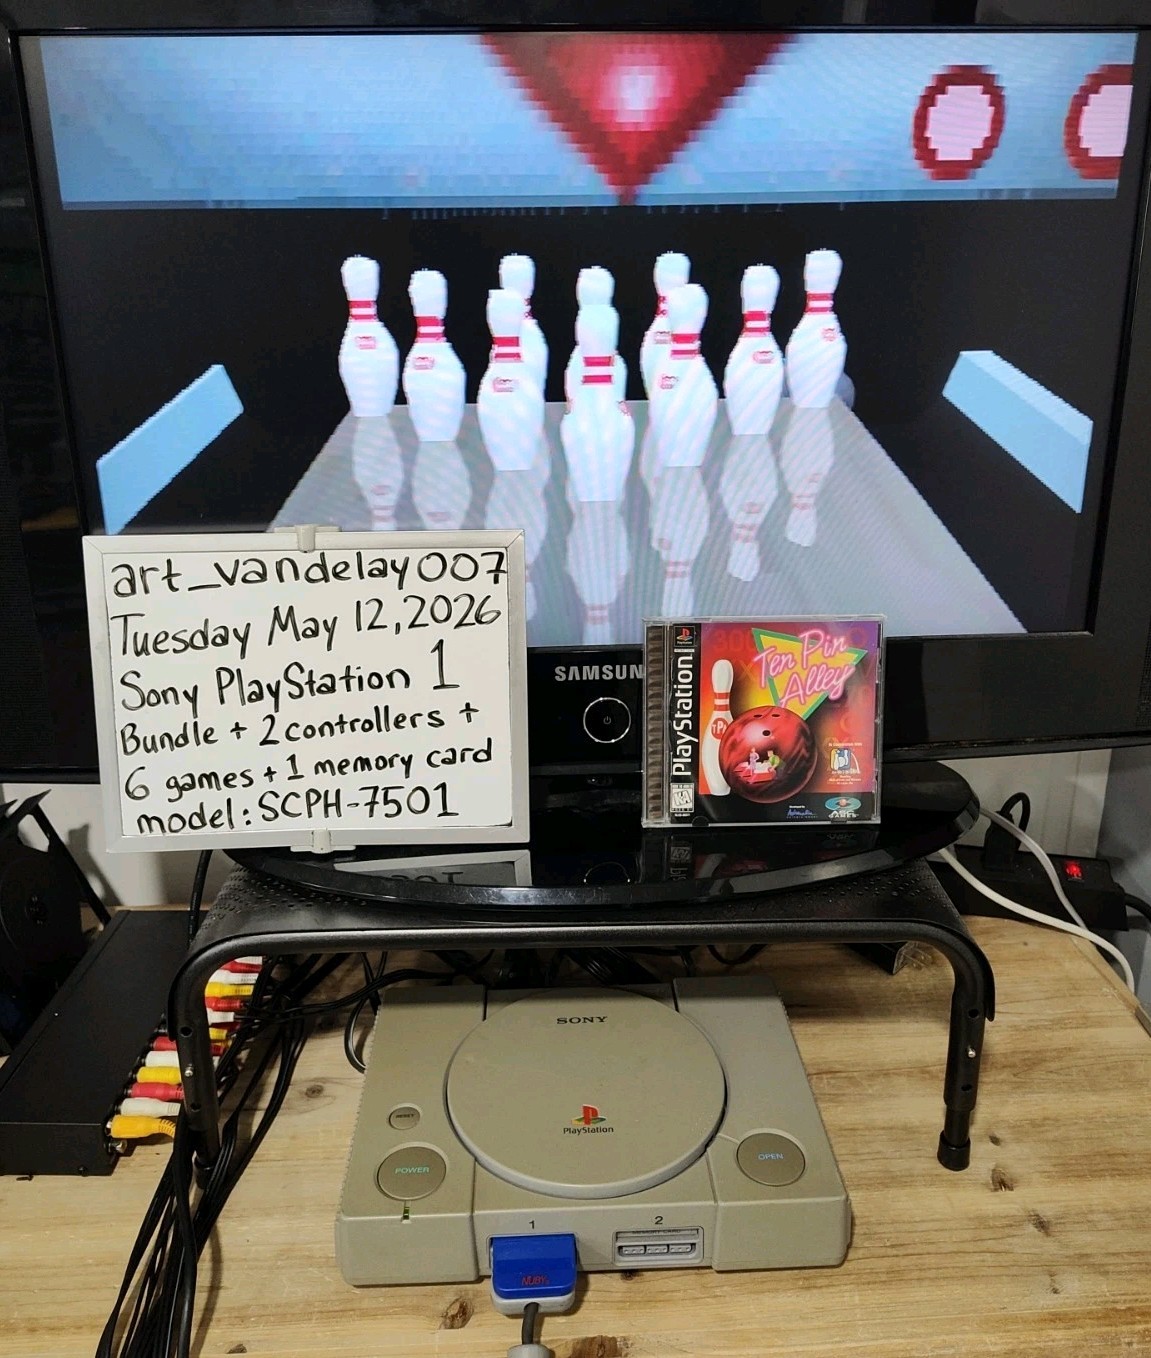 art_vandelay007
Tuesday May 12, 2026
Sony PlayStation 1
Bundle + 2 controllers +
6 games + 1 memory card
model: SCPH-7501
SAMSUN
PlayStation
Ten Pin
Alley
SONY
PlayStation
RESET
POWER
OPEN
1
2
MEMORY CARD